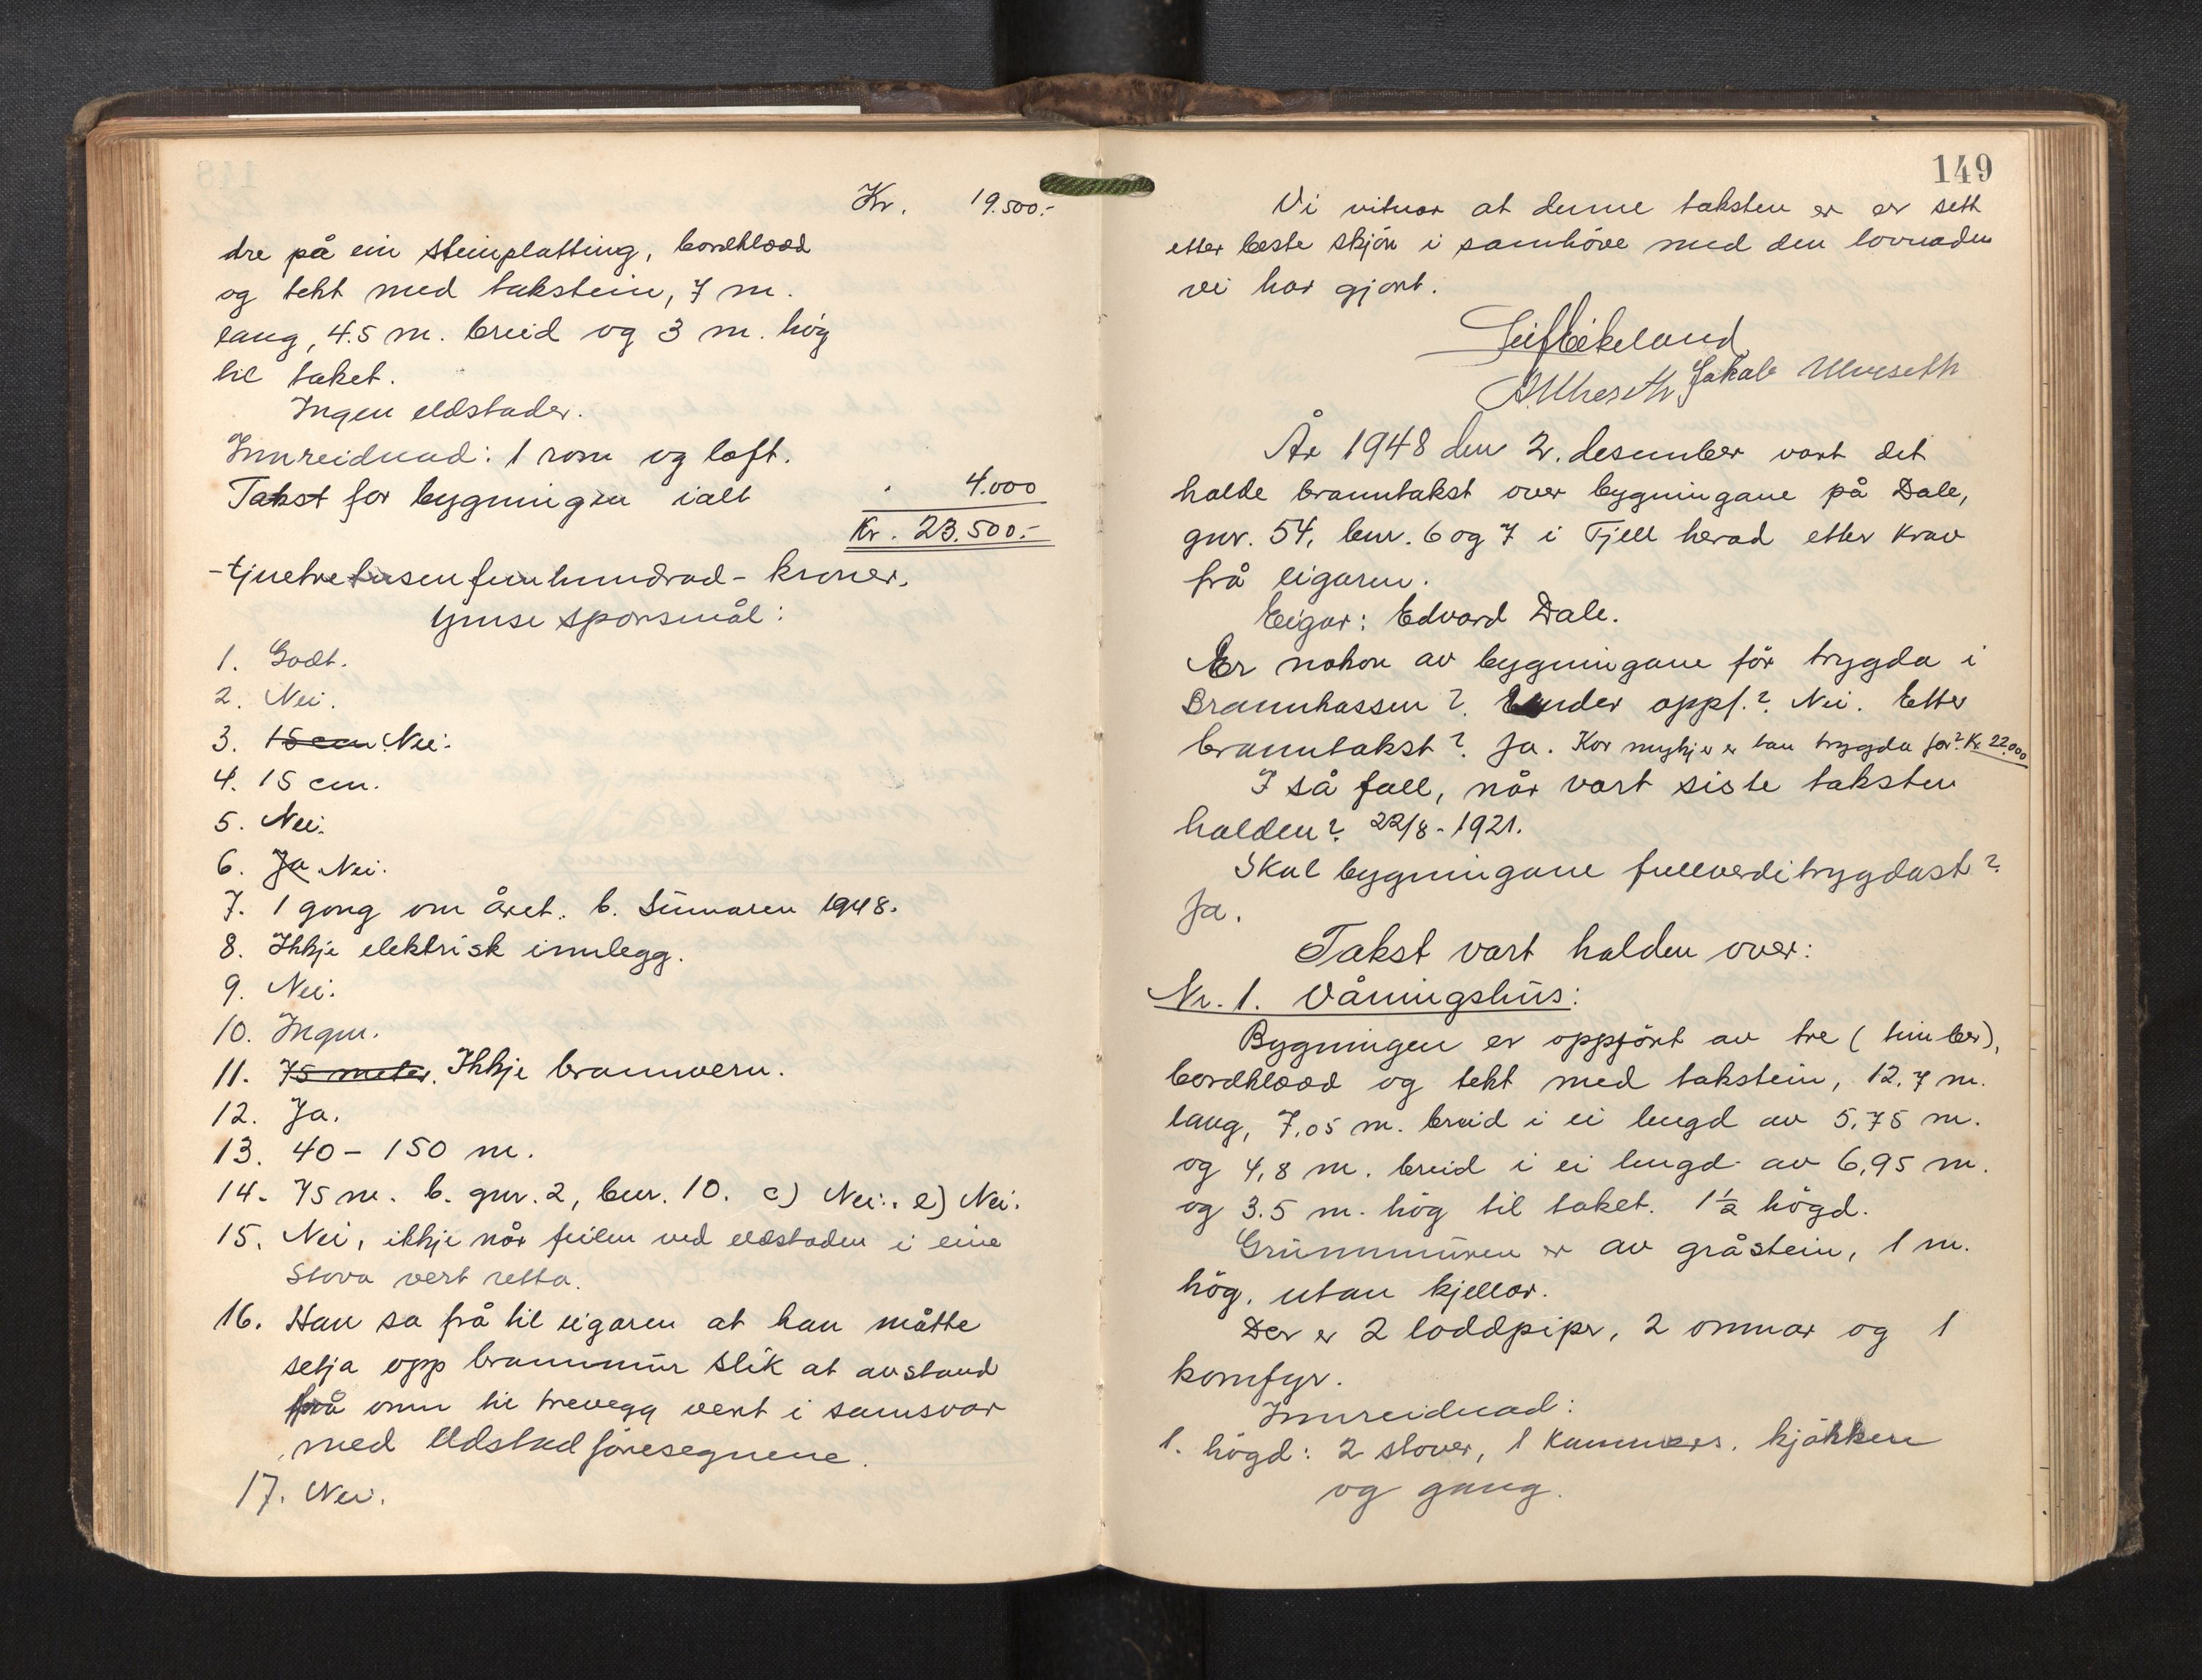 Kr. 19.500.-
dre på ein steinplatting, bordklædd
og tekt med takstein, 7 m.
lang, 4.5 m. breid og 3 m. høg
til taket.
Ingen eldstader.
Innreidnad: 1 rom og loft.
Takst for bygningen ialt " 4.000
Kr. 23.500.-
- tjuetretusenfemhundrad - kroner.
Ymse spørsmål:
1. Godt.
2. Nei.
3. 15 cm. Nei.
4. 15 cm.
5. Nei.
6. Ja Nei.
7. 1 gong om året. b. Sumaren 1948.
8. Ikkje elektrisk innlegg.
9. Nei.
10. Ingen.
11. 75 meter. Ikkje brannvern.
12. Ja.
13. 40 - 150 m.
14. 75 m. b. gnr. 2, bnr. 10. c) Nei. e) Nei.
15. Nei, ikkje når feilen ved eldstaden i eine
stova vert retta.
16. Han sa frå til eigaren at han måtte
setja opp brannmur slik at avstand
frå omn til trevegg vert i samsvar
med Eldstadføresegnene.
17. Nei.
149
Vi vitnar at denne taksten er er sett
etter beste skjøn i samhøve med den lovnaden
vi har gjort.
Leif Eikeland
A Ulveseth Jakob Ulveseth
År 1948 den 2. desember vart det
halde branntakst over bygningane på Dale,
gnr. 54, bnr. 6 og 7 i Fjell herad etter krav
frå eigaren.
Eigar: Edvard Dale.
Er nokon av bygningane før trygda i
Brannkassen? Under oppf.? Nei. Etter
branntakst? Ja. Kor mykje er han trygda for? Kr. 22.000
I så fall, når vart siste taksten
halden? 22/8 - 1921.
Skal bygningane fullverditrygdast?
Ja.
Takst vart halden over:
Nr. 1. Våningshus:
Bygningen er oppført av tre (timber),
bordklædd og tekt med takstein, 12.7 m.
lang, 7,05 m. breid i ei lengd av 5,75 m.
og 4,8 m. breid i ei lengd av 6,95 m.
og 3.5 m. høg til taket. 1½ høgd.
Grunnmuren er av gråstein, 1 m.
høg, utan kjellar.
Der er 2 loddpiper, 2 omnar og 1
komfyr.
Innreidnad:
1. høgd: 2 stover, 1 kammers, kjøkken
og gang.